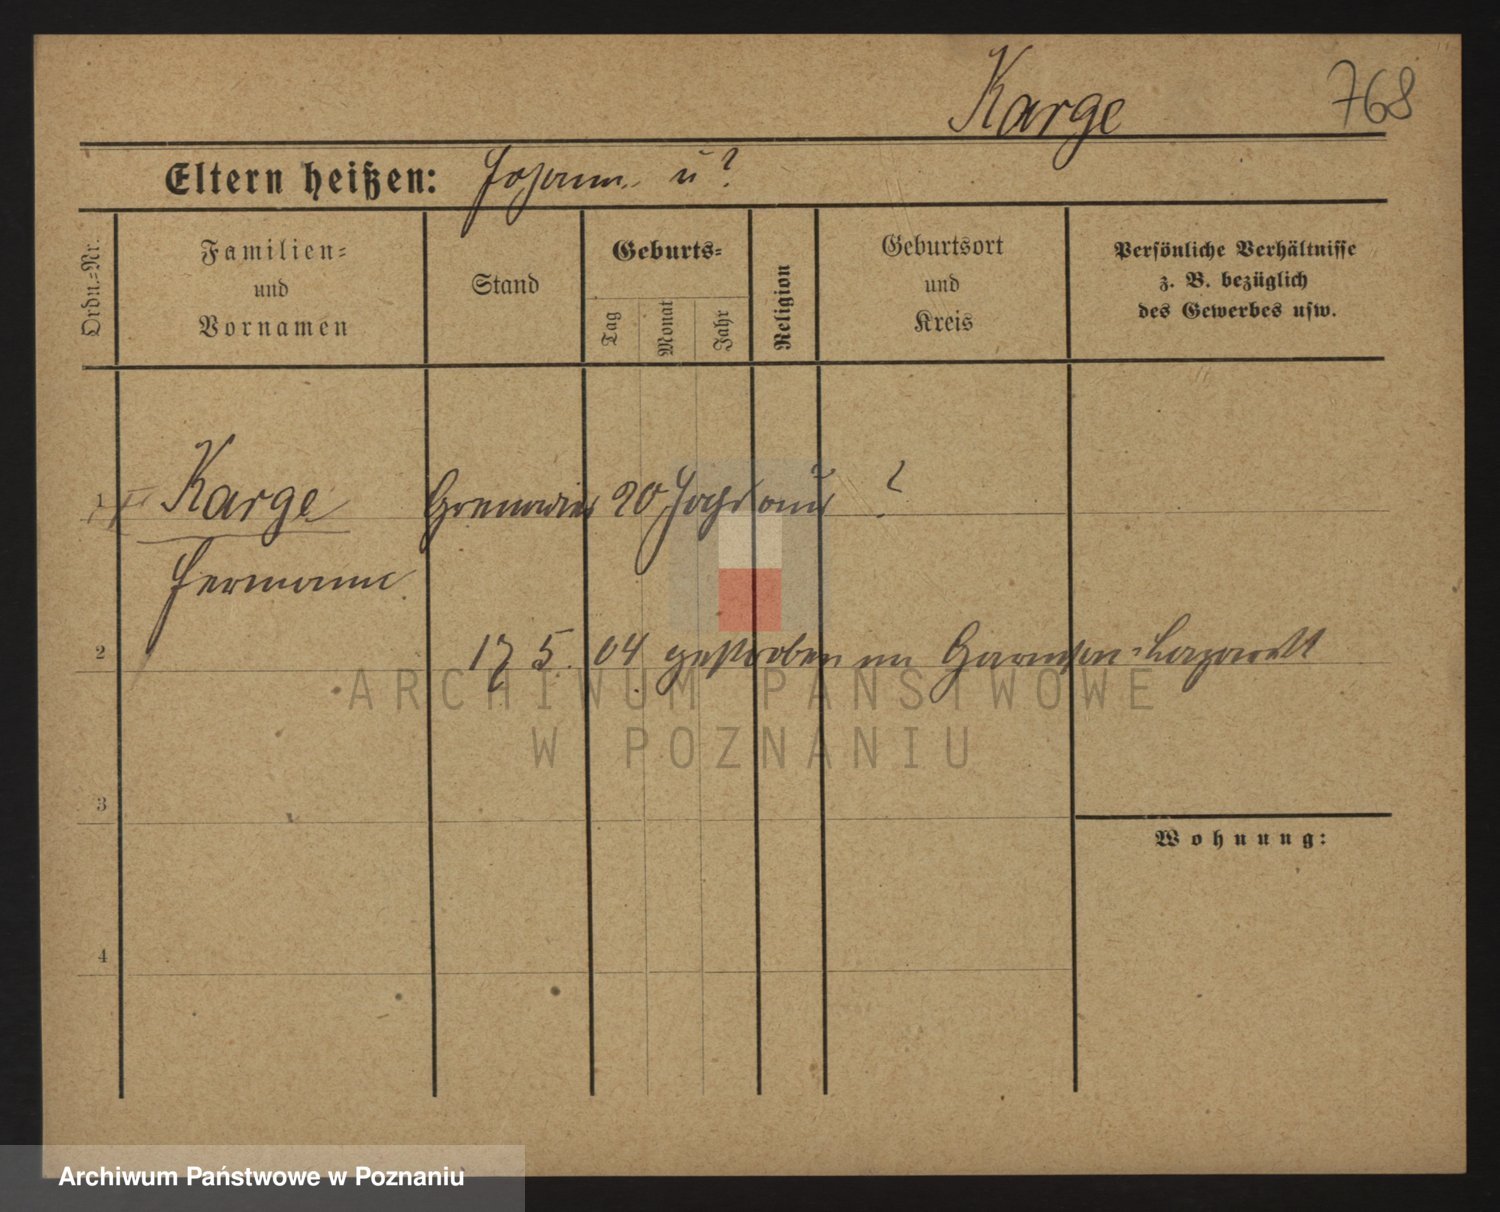 Karge 768
Eltern heißen: Johann u ?
Ordn.-Nr.
Familien-
und
Vornamen
Stand
Geburts-
Tag
Monat
Jahr
Religion
Geburtsort
und
Kreis
Persönliche Verhältnisse
z. B. bezüglich
des Gewerbes usw.
1 Karge Grenadier 20 Jahr aus ?
Hermann
2 17 5. 04 gestorben im Garnison-Lazarett
ARCHIWUM PAŃSTWOWE
W POZNANIU
3
Wohnung:
4
Archiwum Państwowe w Poznaniu